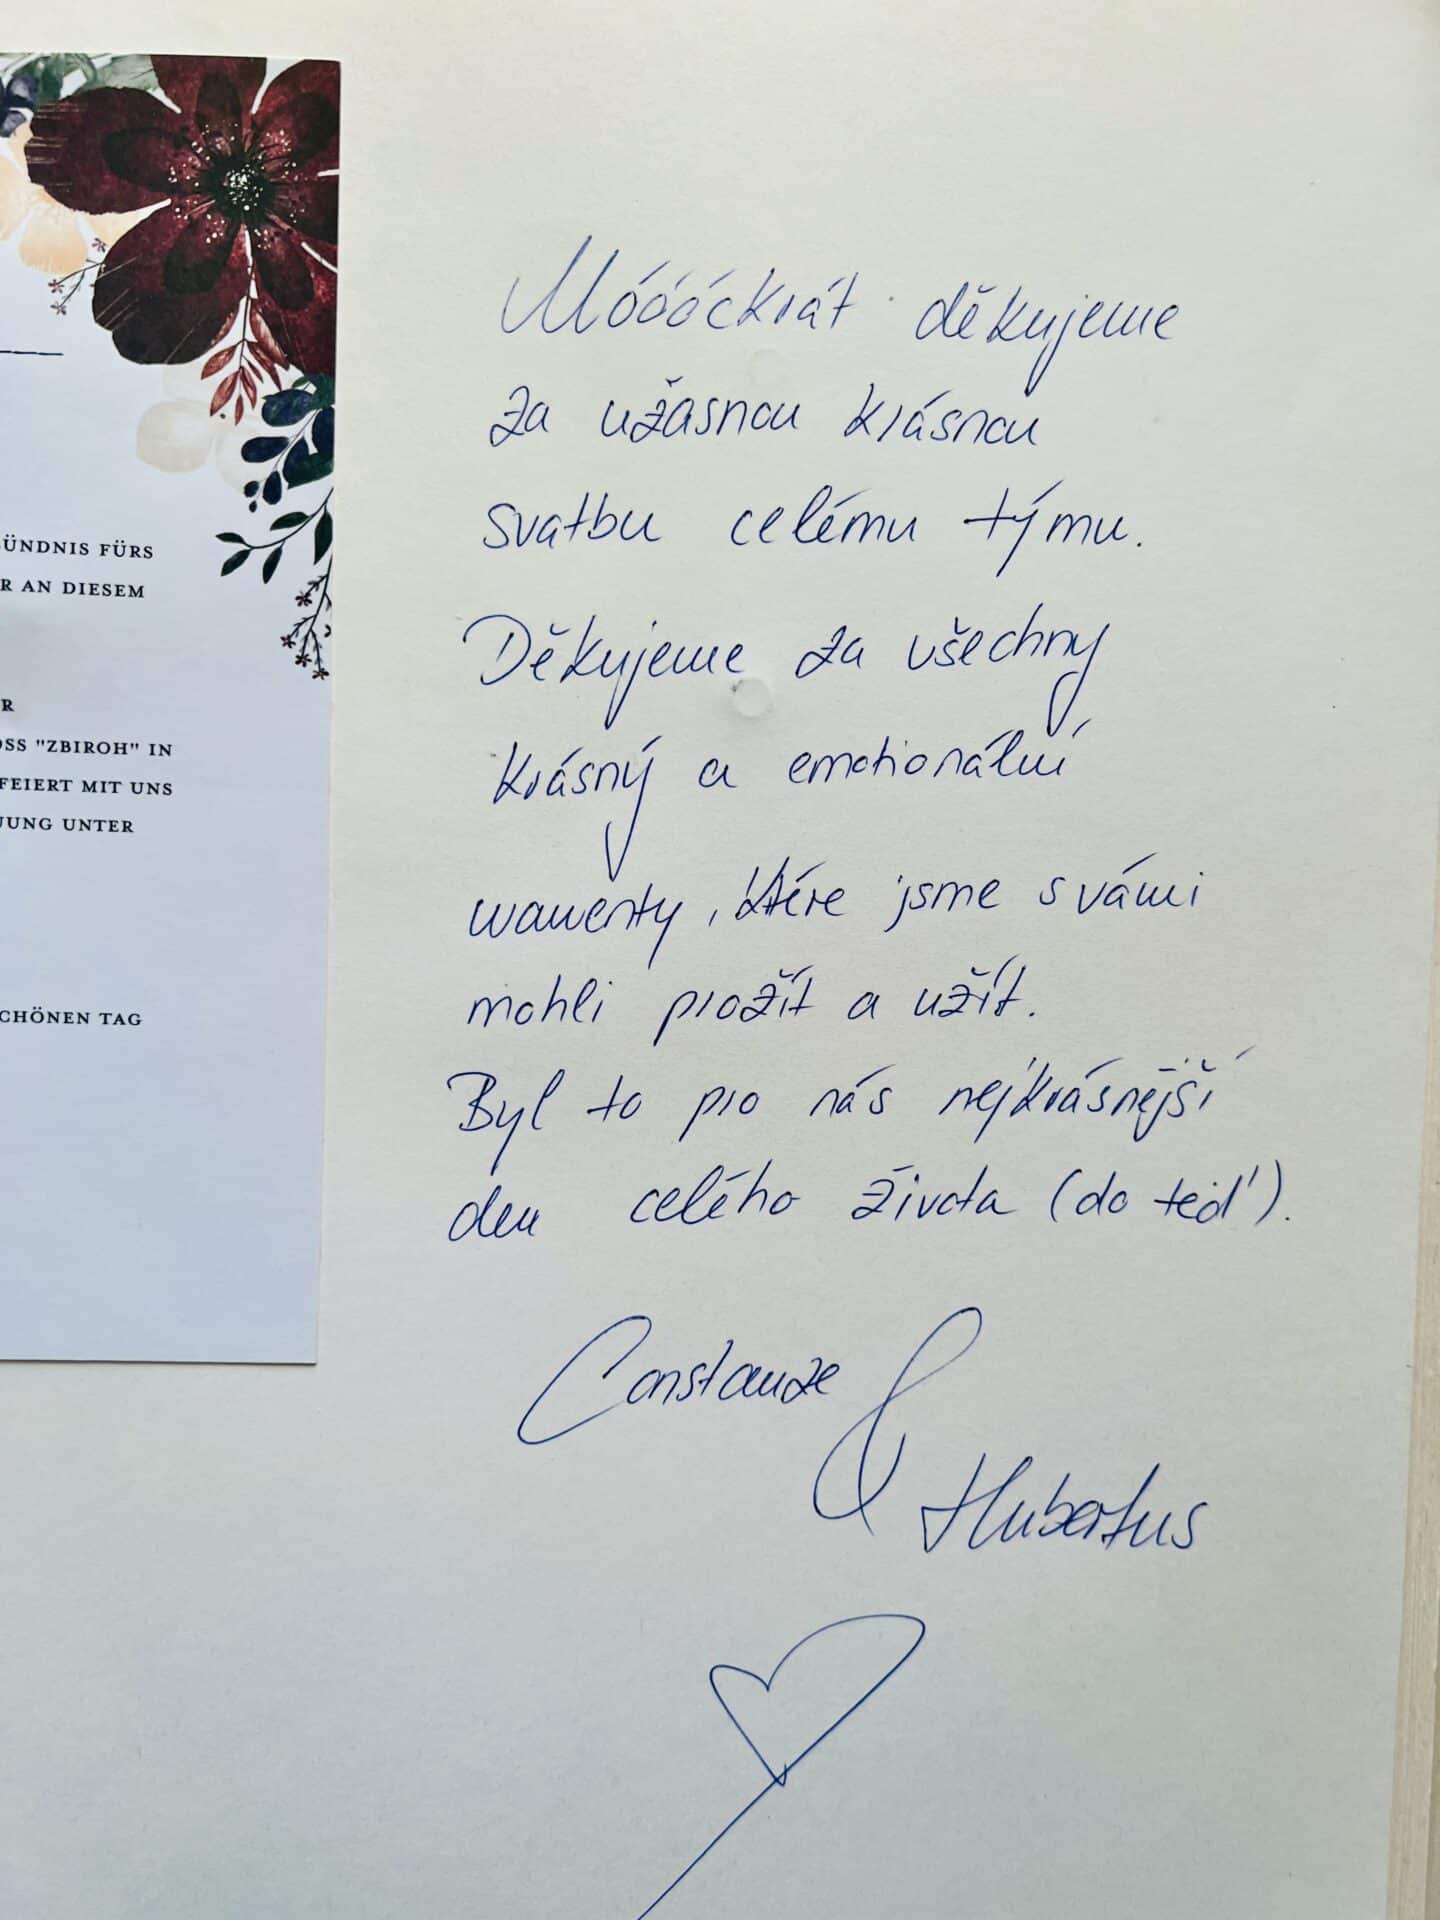 ÜNDNIS FÜRS
R AN DIESEM
R
OSS "ZBIROH" IN
FEIERT MIT UNS
UUNG UNTER
CHÖNEN TAG
Móóóckrát děkujeme
za užasnou krásnou
svatbu celému týmu.
Děkujeme za všechny
krásný a emotionální
momenty, ktére jsme s vámi
mohli prožít a užít.
Byl to pro nás nejkrásnější
den celého života (do teď).
Constanze
&
Hubertus